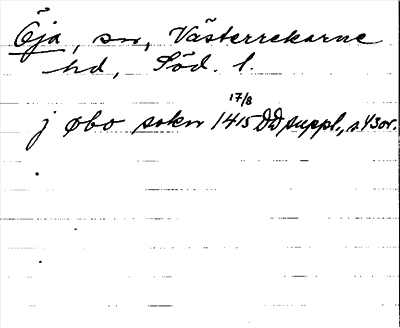 Öja, sn, Västerrekarne
hd, Söd. l.
j øbo sokn 1415 17/8 DD suppl., s. 43 or.